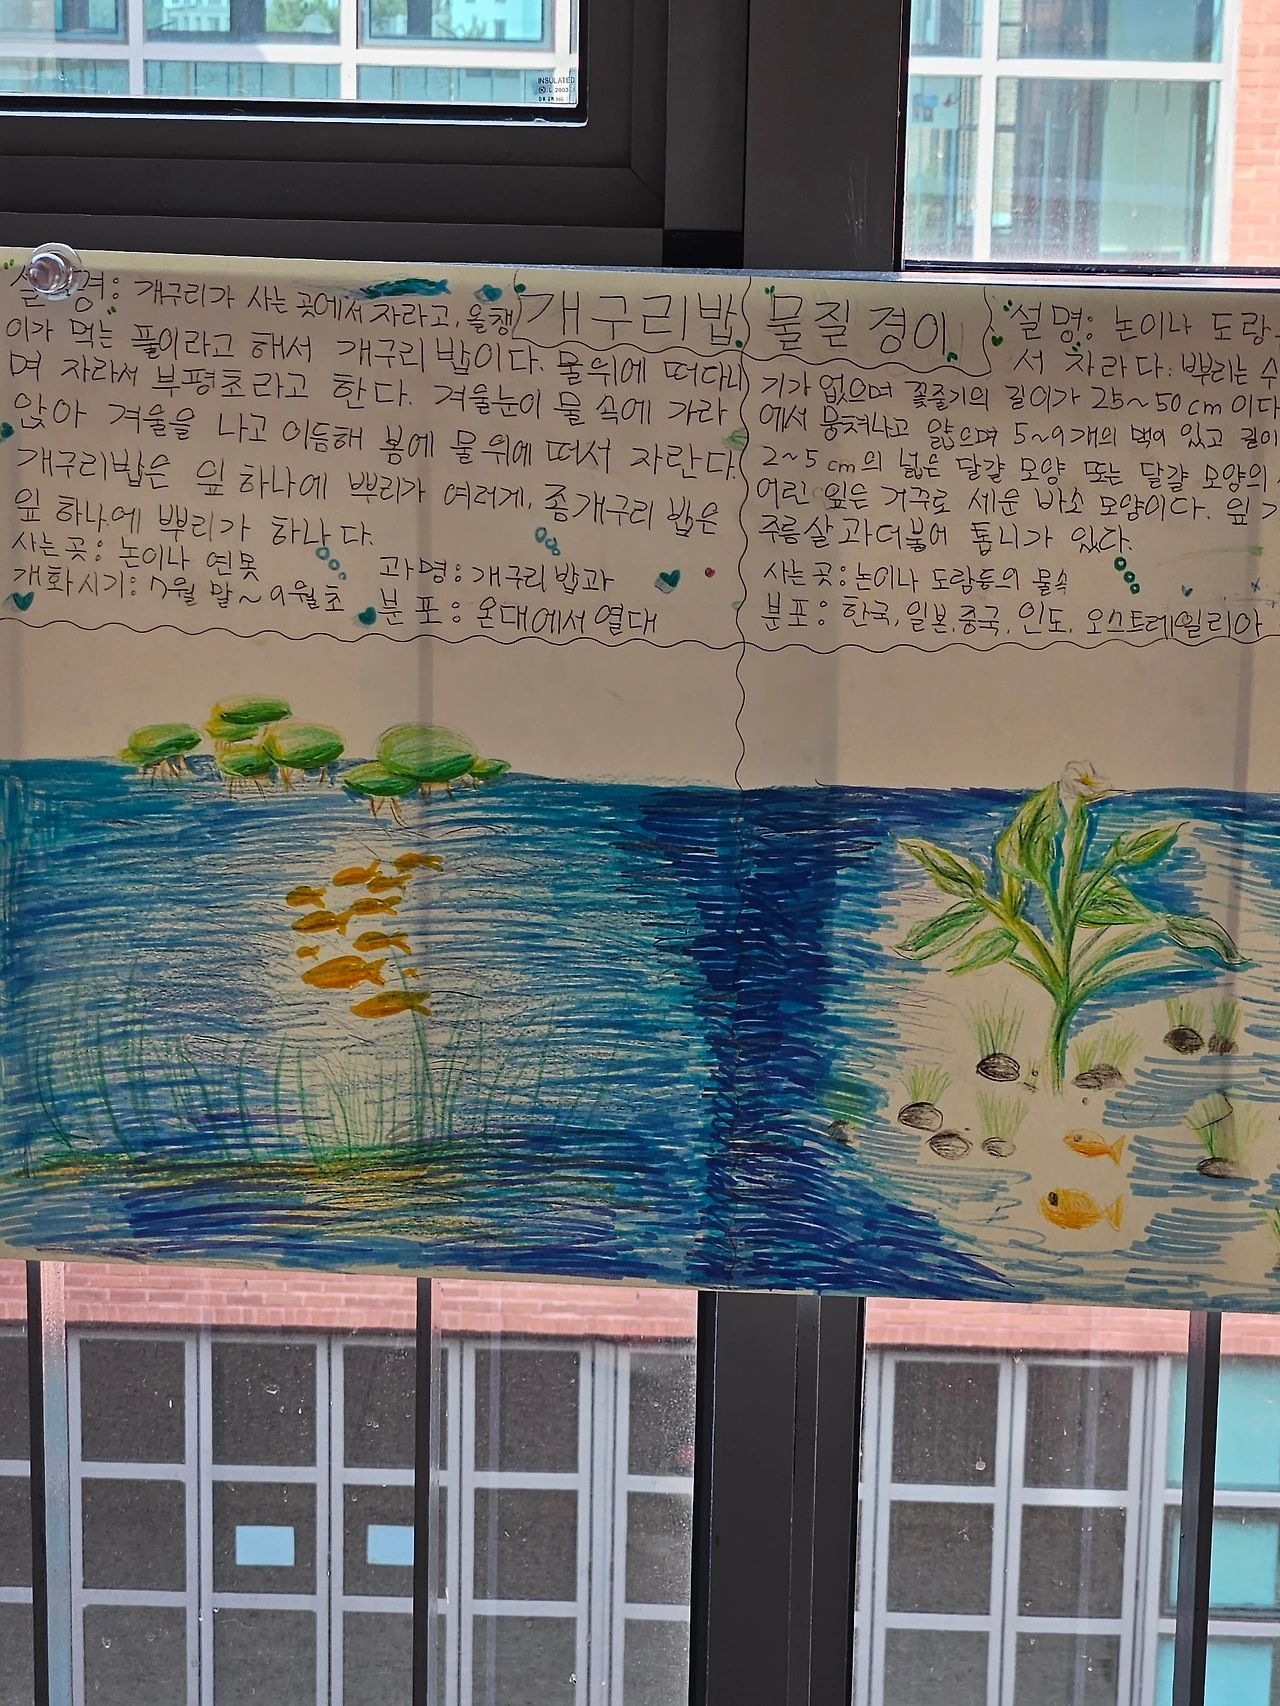 INSULATED
설명: 개구리가 사는 곳에서 자라고, 올챙
이가 먹는 풀이라고 해서 개구리밥이다. 물위에 떠다니
며 자라서 부평초라고 한다. 겨울눈이 물 속에 가라
앉아 겨울을 나고 이듬해 봄에 물위에 떠서 자란다.
개구리밥은 잎 하나에 뿌리가 여러게, 좀개구리 밥은
잎 하나에 뿌리가 하나다.
사는곳: 논이나 연못
개화시기: 7월 말~9월초
과명: 개구리밥과
분포: 온대에서 열대
개구리밥
물질경이
설명: 논이나 도랑
서 자라다. 뿌리는 수
기가 없으며 꽃줄기의 길이가 25~50cm이다
에서 뭉쳐나고 얇으며 5~9개의 맥이 있고 길이
2~5cm의 넓은 달걀 모양 또는 달걀 모양의
어린 잎은 거꾸로 세운 바소 모양이다. 잎 가
주름살과 더불어 톱니가 있다.
사는곳: 논이나 도랑등의 물속
분포: 한국, 일본, 중국, 인도, 오스트레일리아